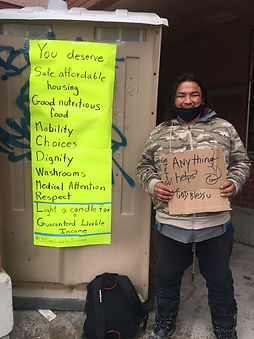 You deserve:
Safe, affordable
housing
Good nutritious
food
Mobility
Choices
Dignity
Washrooms
Medical Attention
Respect
Light a candle for
Guaranteed Livable
Income
Anything
helps?
God Bless u